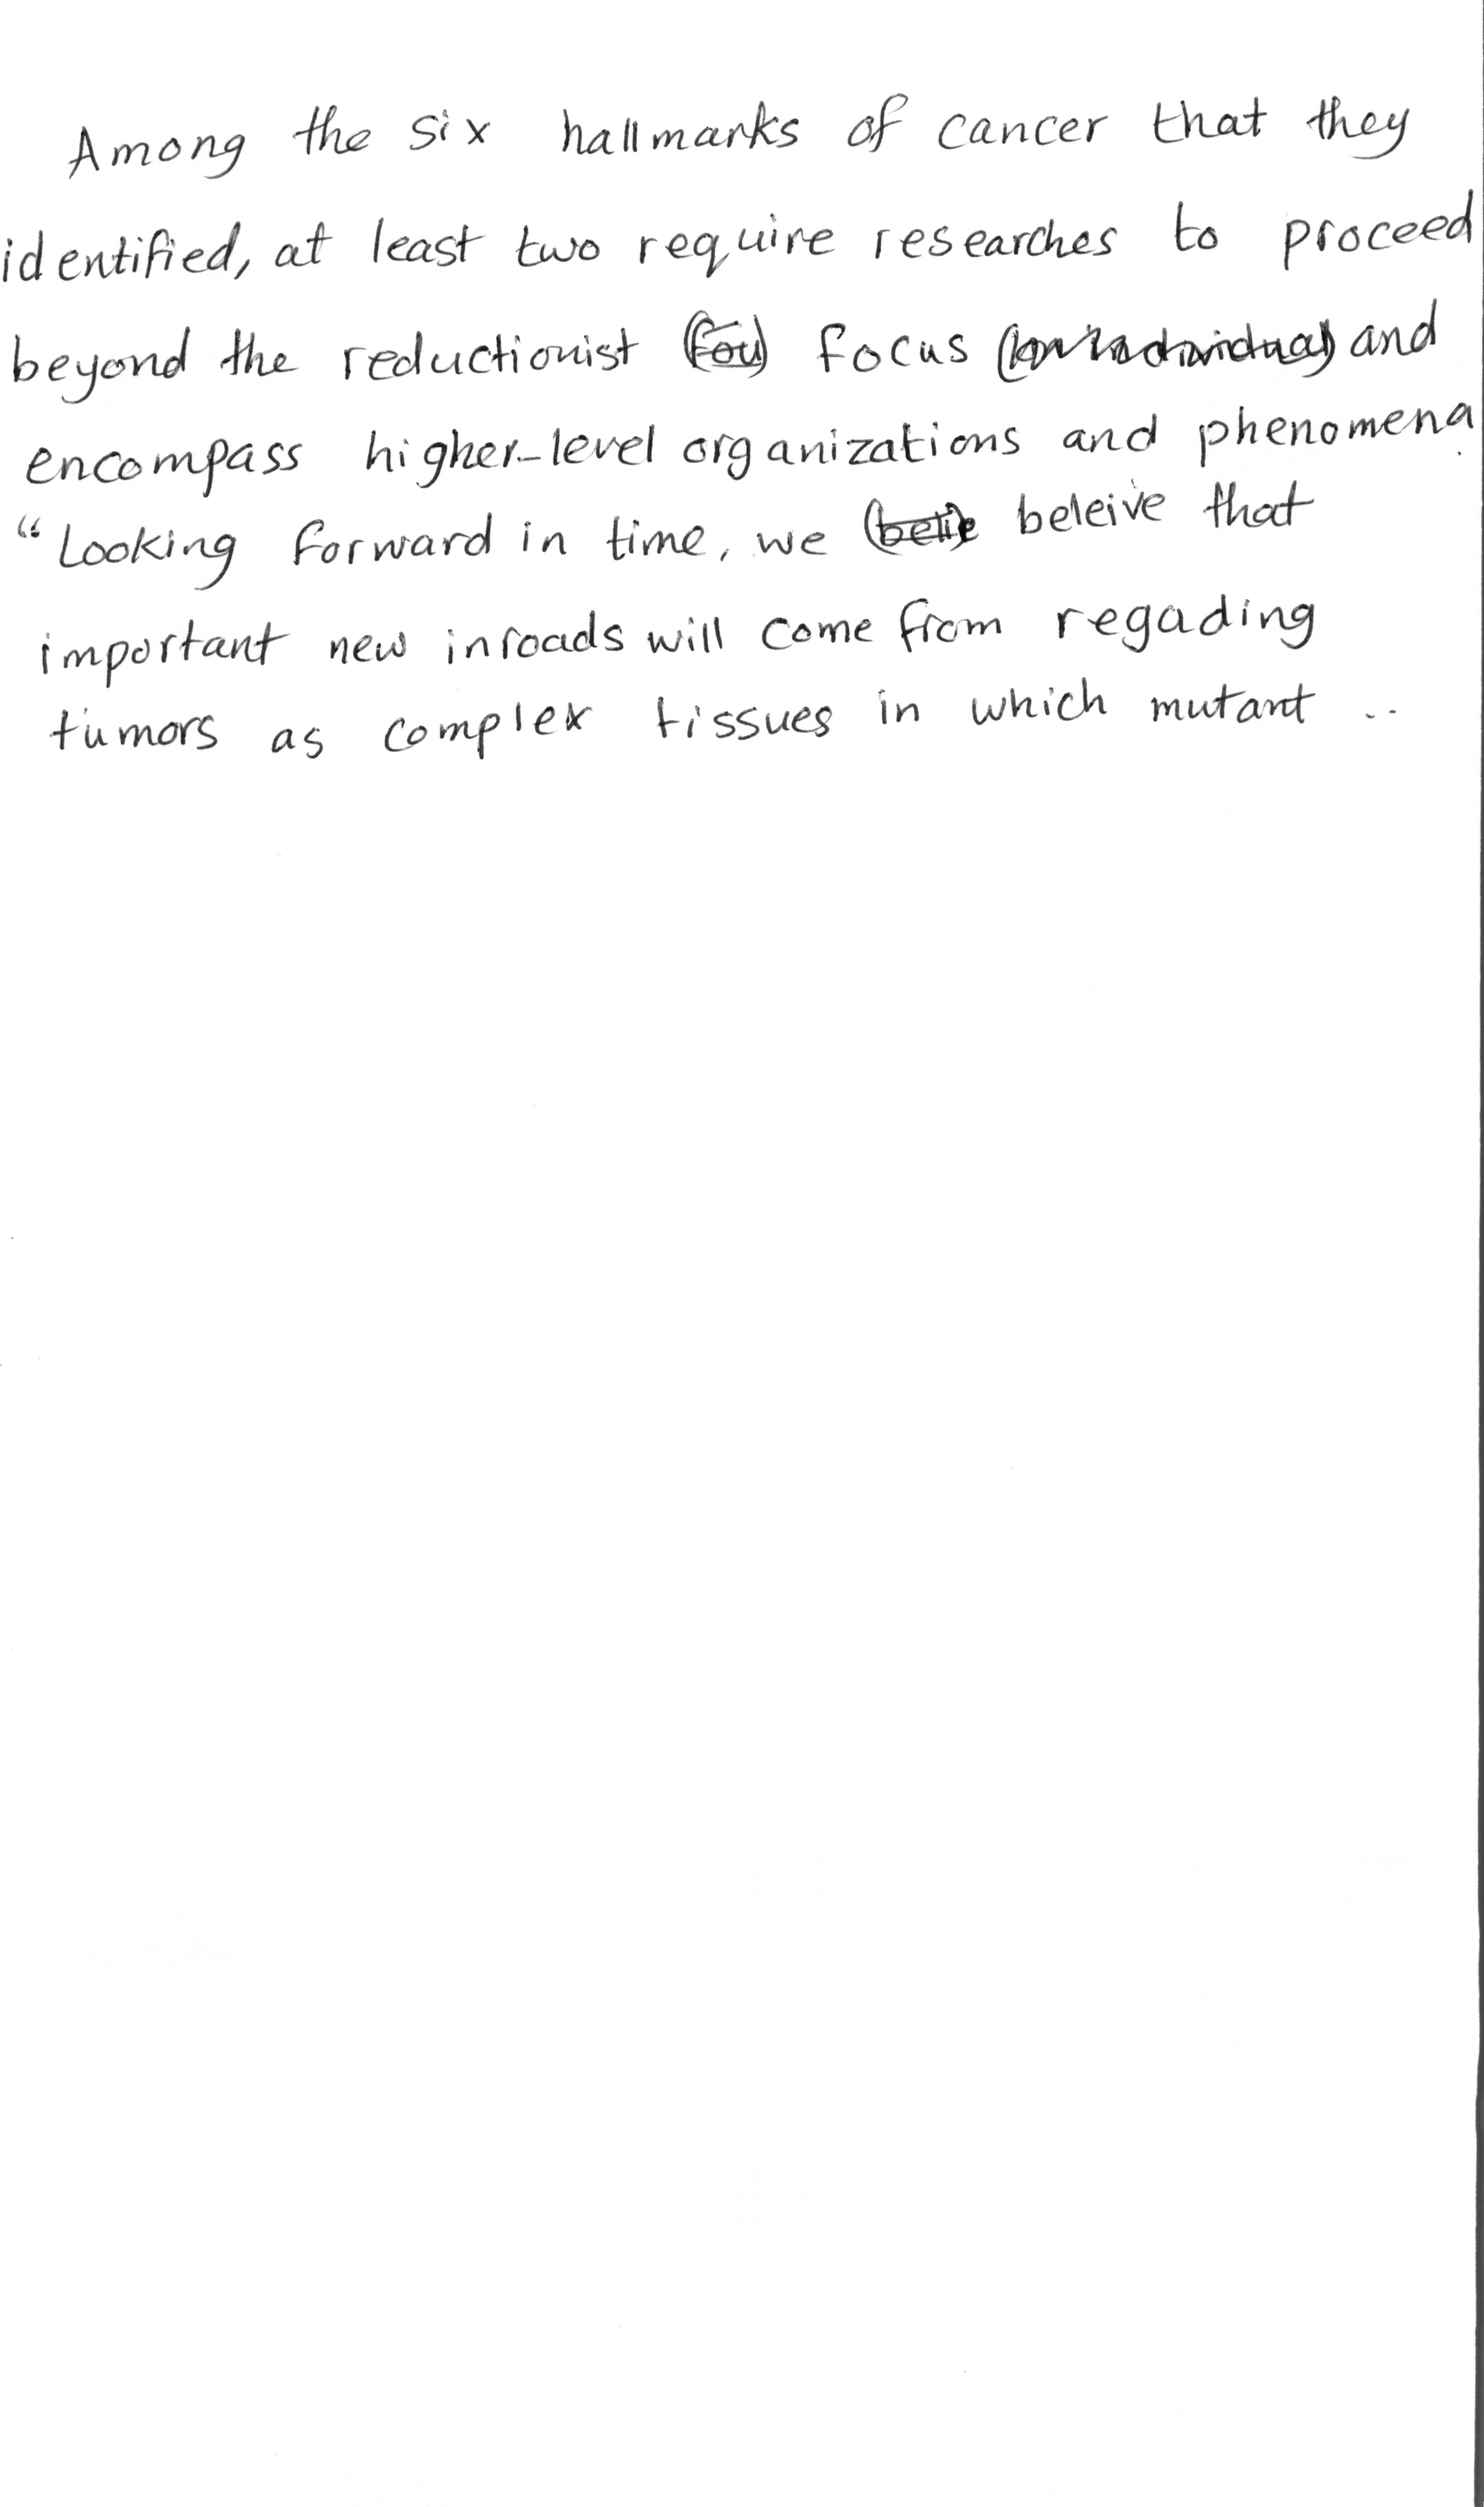 Among the six hallmarks of cancer that they
identified, at least two require researches to proceed
beyond the reductionist (fou) focus (on individual) and
encompass higher-level organizations and phenomena.
"Looking forward in time, we (belie) beleive that
important new inroads will come from regading
tumors as complex tissues in which mutant ..